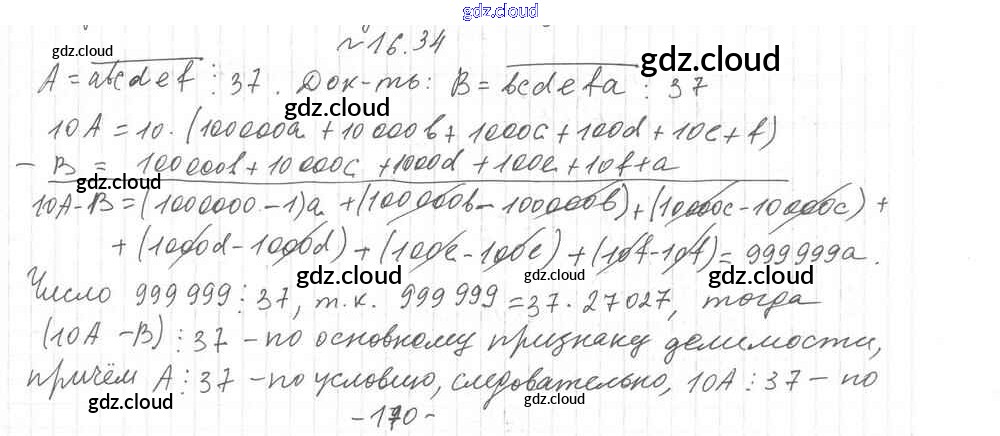 gdz.cloud
№16.34
gdz.cloud
gdz.cloud
A = abcdef ⋮ 37. Док-ть: B = bcdefa ⋮ 37
gdz.cloud
10A = 10·(100000a + 10000b + 1000c + 100d + 10e + f)
– B = 100000b + 10000c + 1000d + 100e + 10f + a
gdz.cloud
gdz.cloud
10A-B = (1000000-1)a + (100000b - 100000b) + (10000c - 10000c) +
+ (1000d - 1000d) + (100e - 100e) + (10f - 10f) = 999999a.
gdz.cloud
gdz.cloud
Число 999 999 ⋮ 37, т.к. 999 999 = 37 · 27027, тогда
(10A - B) ⋮ 37 - по основному признаку делимости,
причём A ⋮ 37 - по условию, следовательно, 10A ⋮ 37 - по
gdz.cloud
gdz.cloud
-170-